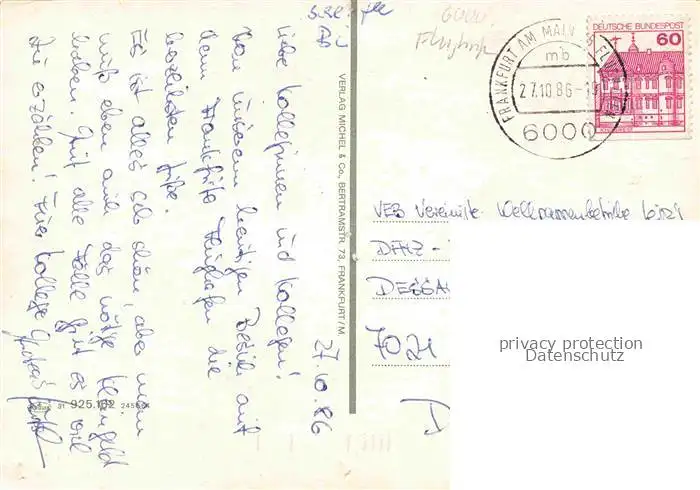 27.10.86
Liebe Kolleginnen und Kollegen!
Von unserem heutigen Besuch auf
dem Frankfurter Flughafen die
herzlichsten Grüße.
Es ist alles sehr schön, aber man
muß eben auch das nötige Kleingeld
haben. Auf alle Fälle gibt es viel
zu erzählen! Euer Kollege
VERLAG MICHEL & Co., BERTRAMSTR. 73, FRANKFURT/M.
31 925.182
Flughafen
FRANKFURT AM MAIN
mb
27.10.86-19
6000
DEUTSCHE BUNDESPOST
60
VEB Vereinigte
DESSAU
7021
D
privacy protection
Datenschutz